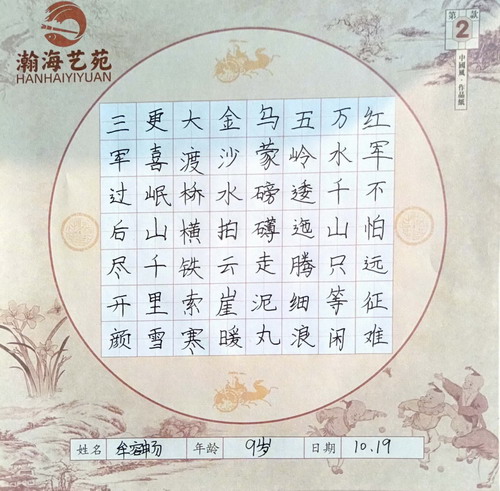 瀚海艺苑
HANHAIYIYUAN
第2款
中國風·作品紙
红军不怕远征难
万水千山只等闲
五岭逶迤腾细浪
乌蒙磅礴走泥丸
金沙水拍云崖暖
大渡桥横铁索寒
更喜岷山千里雪
三军过后尽开颜
姓名 牟 畅 年龄 9岁 日期 10.19